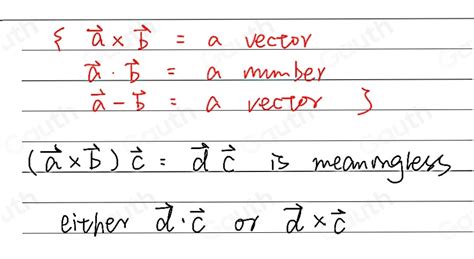 { a⃗ × b⃗ = a vector
a⃗ · b⃗ = a number
a⃗ - b⃗ = a vector }
(a⃗ × b⃗) c⃗ = d⃗ c⃗ is meaningless
either d⃗ · c⃗ or d⃗ × c⃗